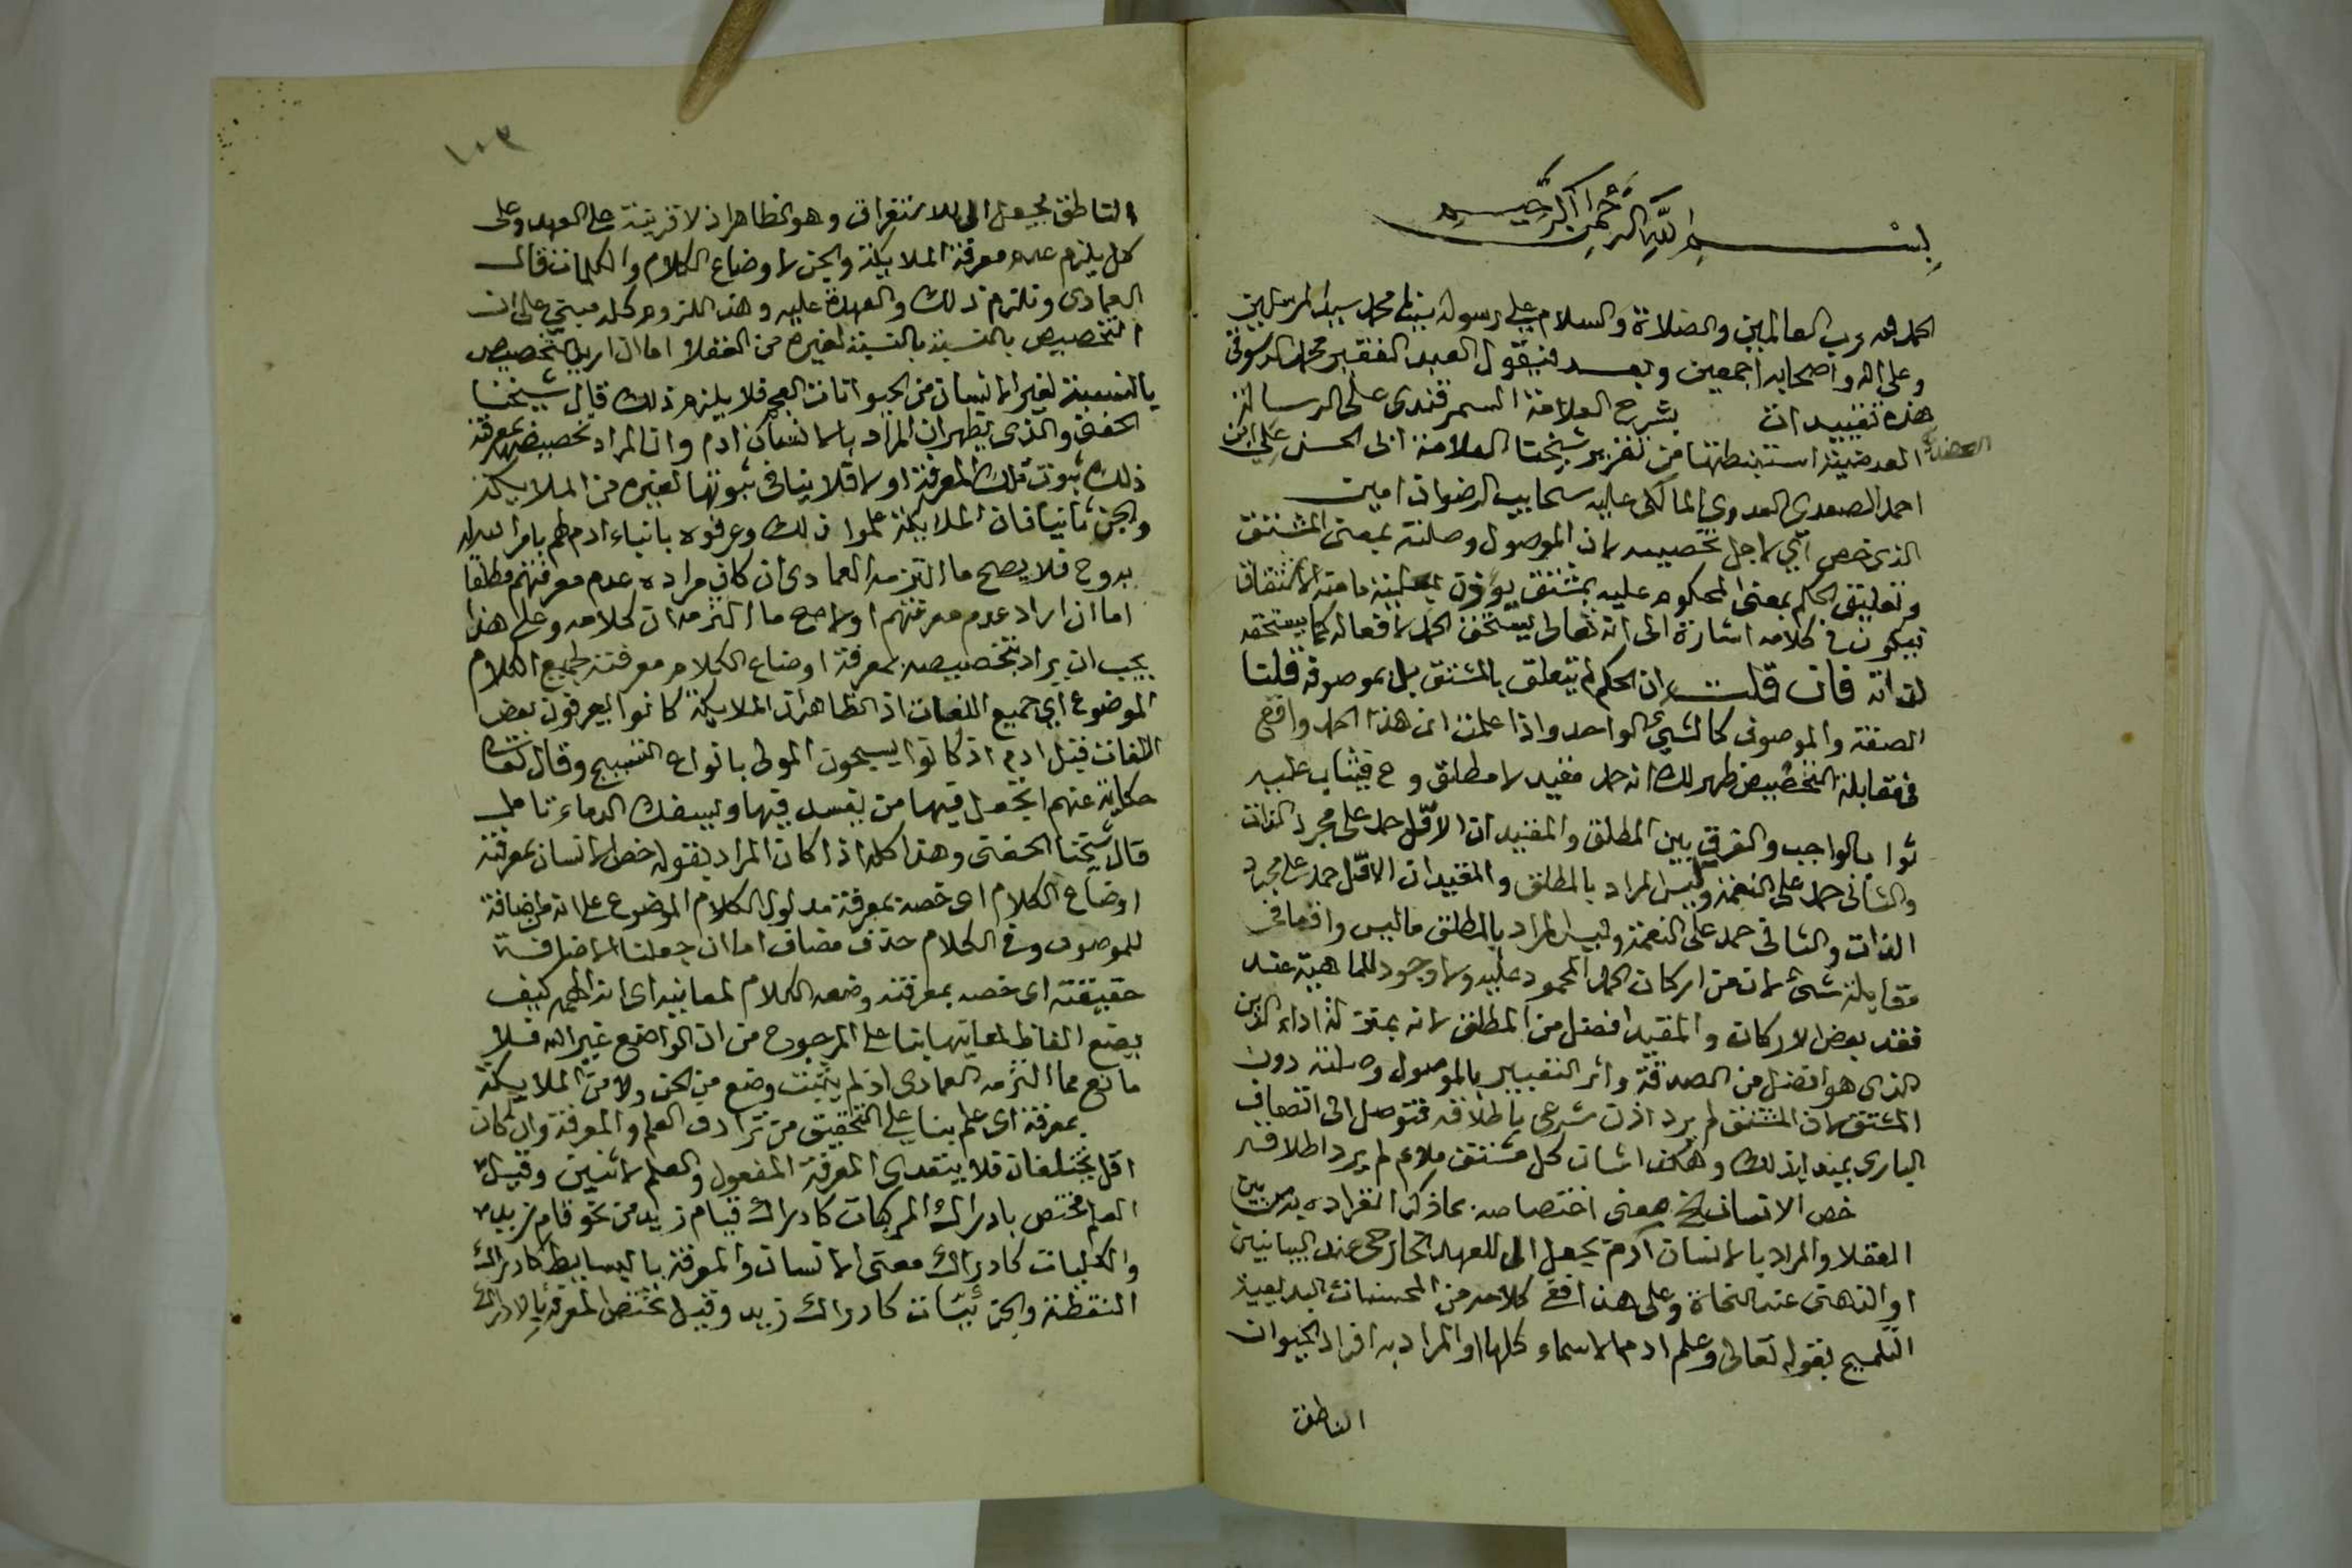 بسم الله الرحمن الرحيم
الحمد لله رب العالمين والصلاة والسلام على رسوله نبينا محمد سيد المرسلين
وعلى اله واصحابه اجمعين وبعد فيقول العبد الفقير محمد الدسوقي
هذه تقييدات بشرح العلامة السمرقندي على الرسالة
العضدية الوضعية استنبطتها من تقرير شيخنا العلامة ابى الحسن على ابن
احمد الصعيدي العدوي المالكى عليه سحايب الرضوان امين
الذى خص اي لاجل تخصيصه لان الموصول وصلته بمعنى المشتق
وتعليق الحكم بمعنى المحكوم عليه بمشتق يوذن بعلية ما منه الاشتقاق
فيكون فى كلامه اشارة الى انه تعالى يستحق الحمد لافعاله كما يستحقه
لذاته فان قلت ان الحكم لم يتعلق بالمشتق بل بموصوفه قلنا
الصفة والموصوف كالشيئ الواحد واذا علمت ان هذا الحمد واقع
فى مقابلة التخصيص ظهر لك انه حمد مقيد لا مطلق وح فيثاب عليه
ثوا بالواجب والفرق بين المطلق والمقيد ان الاول حمد على مجرد الذات
والثانى حمد على النعمة وليس المراد بالمطلق والمقيد ان الاول حمد على مجرد
الذات والثانى حمد على النعمة وليس المراد بالمطلق ماليس واقعا فى
مقابلة شئ لان من اركان الحمد المحمود عليه ولا وجود للماهية عند
فقد بعض الاركان والمقيد افضل من المطلق لانه بمنزلة اداء الدين
الذى هو افضل من الصدقة واثر التعبير بالموصول وصلته دون
المشتق لان المشتق لم يرد اذن شرعى باطلاقه فتوصل الى اتصاف
البارى بمبدا ذلك وهكذا شان كل مشتق ملائم لم يرد اطلاقه
خص الانسان الخ معنى اختصاصه بماذكر انفراده به من بين
العقلا والمراد بالانسان آدم بجعل ال للعهد الخارجى عند البيانيين
او الذهنى عند النحاة وعلى هذا ففى كلامه من المحسنات البديعية
التلميح بقوله تعالى وعلم ادم الاسماء كلها او المراد به افراد الحيوان
الناطق
١٠٣
الناطق بجعل ال للاستغراق وهو الظاهر اذ لا قرينة على العهد وعلى
كل يلزم عدم معرفة الملايكة والجن لاوضاع الكلام والكلمات قال
العمادى ونلتزم ذلك والعهدة عليه وهذا اللزوم كله مبنى على ان
التخصيص بالنسبة بالنسبة لغيره من العقلا اما ان اريد التخصيص
بالنسبة لغير الانسان من الحيوانات العجم فلا يلزم ذلك قال شيخنا
الحفنى والذى يظهر ان المراد بالانسان ادم وان المراد تخصيصه بمعرفة
ذلك ثبوت تلك المعرفة اولا فلا ينافى ثبوتها لغيره من الملايكة
والجن ثانيا فان الملايكة علموا ذلك وعرفوه بانباء ادم لهم بامر الله له
به وح فلا يصح ما التزمه العمادى ان كان مراده عدم معرفتهم مطلقا
اما ان اراد عدم معرفتهم اولا صح ما التزمه كلامه وعلى هذا
يجب ان يراد بتخصيصه بمعرفة اوضاع الكلام معرفته لجميع الكلام
الموضوع اي جميع اللغات اذ الظاهر ان الملايكة كانوا يعرفون بعض
اللغات قبل ادم اذ كانوا يسبحون المولى بانواع التسبيح وقال تعالى
حكاية عنهم اتجعل فيها من يفسد فيها ويسفك الدماء تامل
قال شيخنا الحفنى وهذا كله اذا كان المراد بقوله خص الانسان بمعرفة
اوضاع الكلام اى خصه بمعرفة مدلول الكلام الموضوع على انه من اضافة
للموصوف وفى الكلام حذف مضاف اما ان جعلنا الاضافة
حقيقة اى خصه بمعرفته وضعه الكلام لمعانيه اى انه الهمه كيف
يضع الفاظ لمعانيها بنا على المرجوح من ان الواضع غير الله فلا
مانع مما التزمه العمادى اذ لم يثبت وضع من الجن ولا من الملايكة
بمعرفة اى علم بناء على التحقيق من ترادف العلم والمعرفة وان كان
يختلفان فلا يتعدى المعرفة المفعول والعلم لاثنين وقيل
العلم مختص بادراك المركبات كادراك قيام زيد من نحو قام زيد
والكليات كادراك معنى الانسان والمعرفة بالبسايط كادراك
النقطة والجزئيات كادراك زيد وقيل تختص المعرفة بالادراك